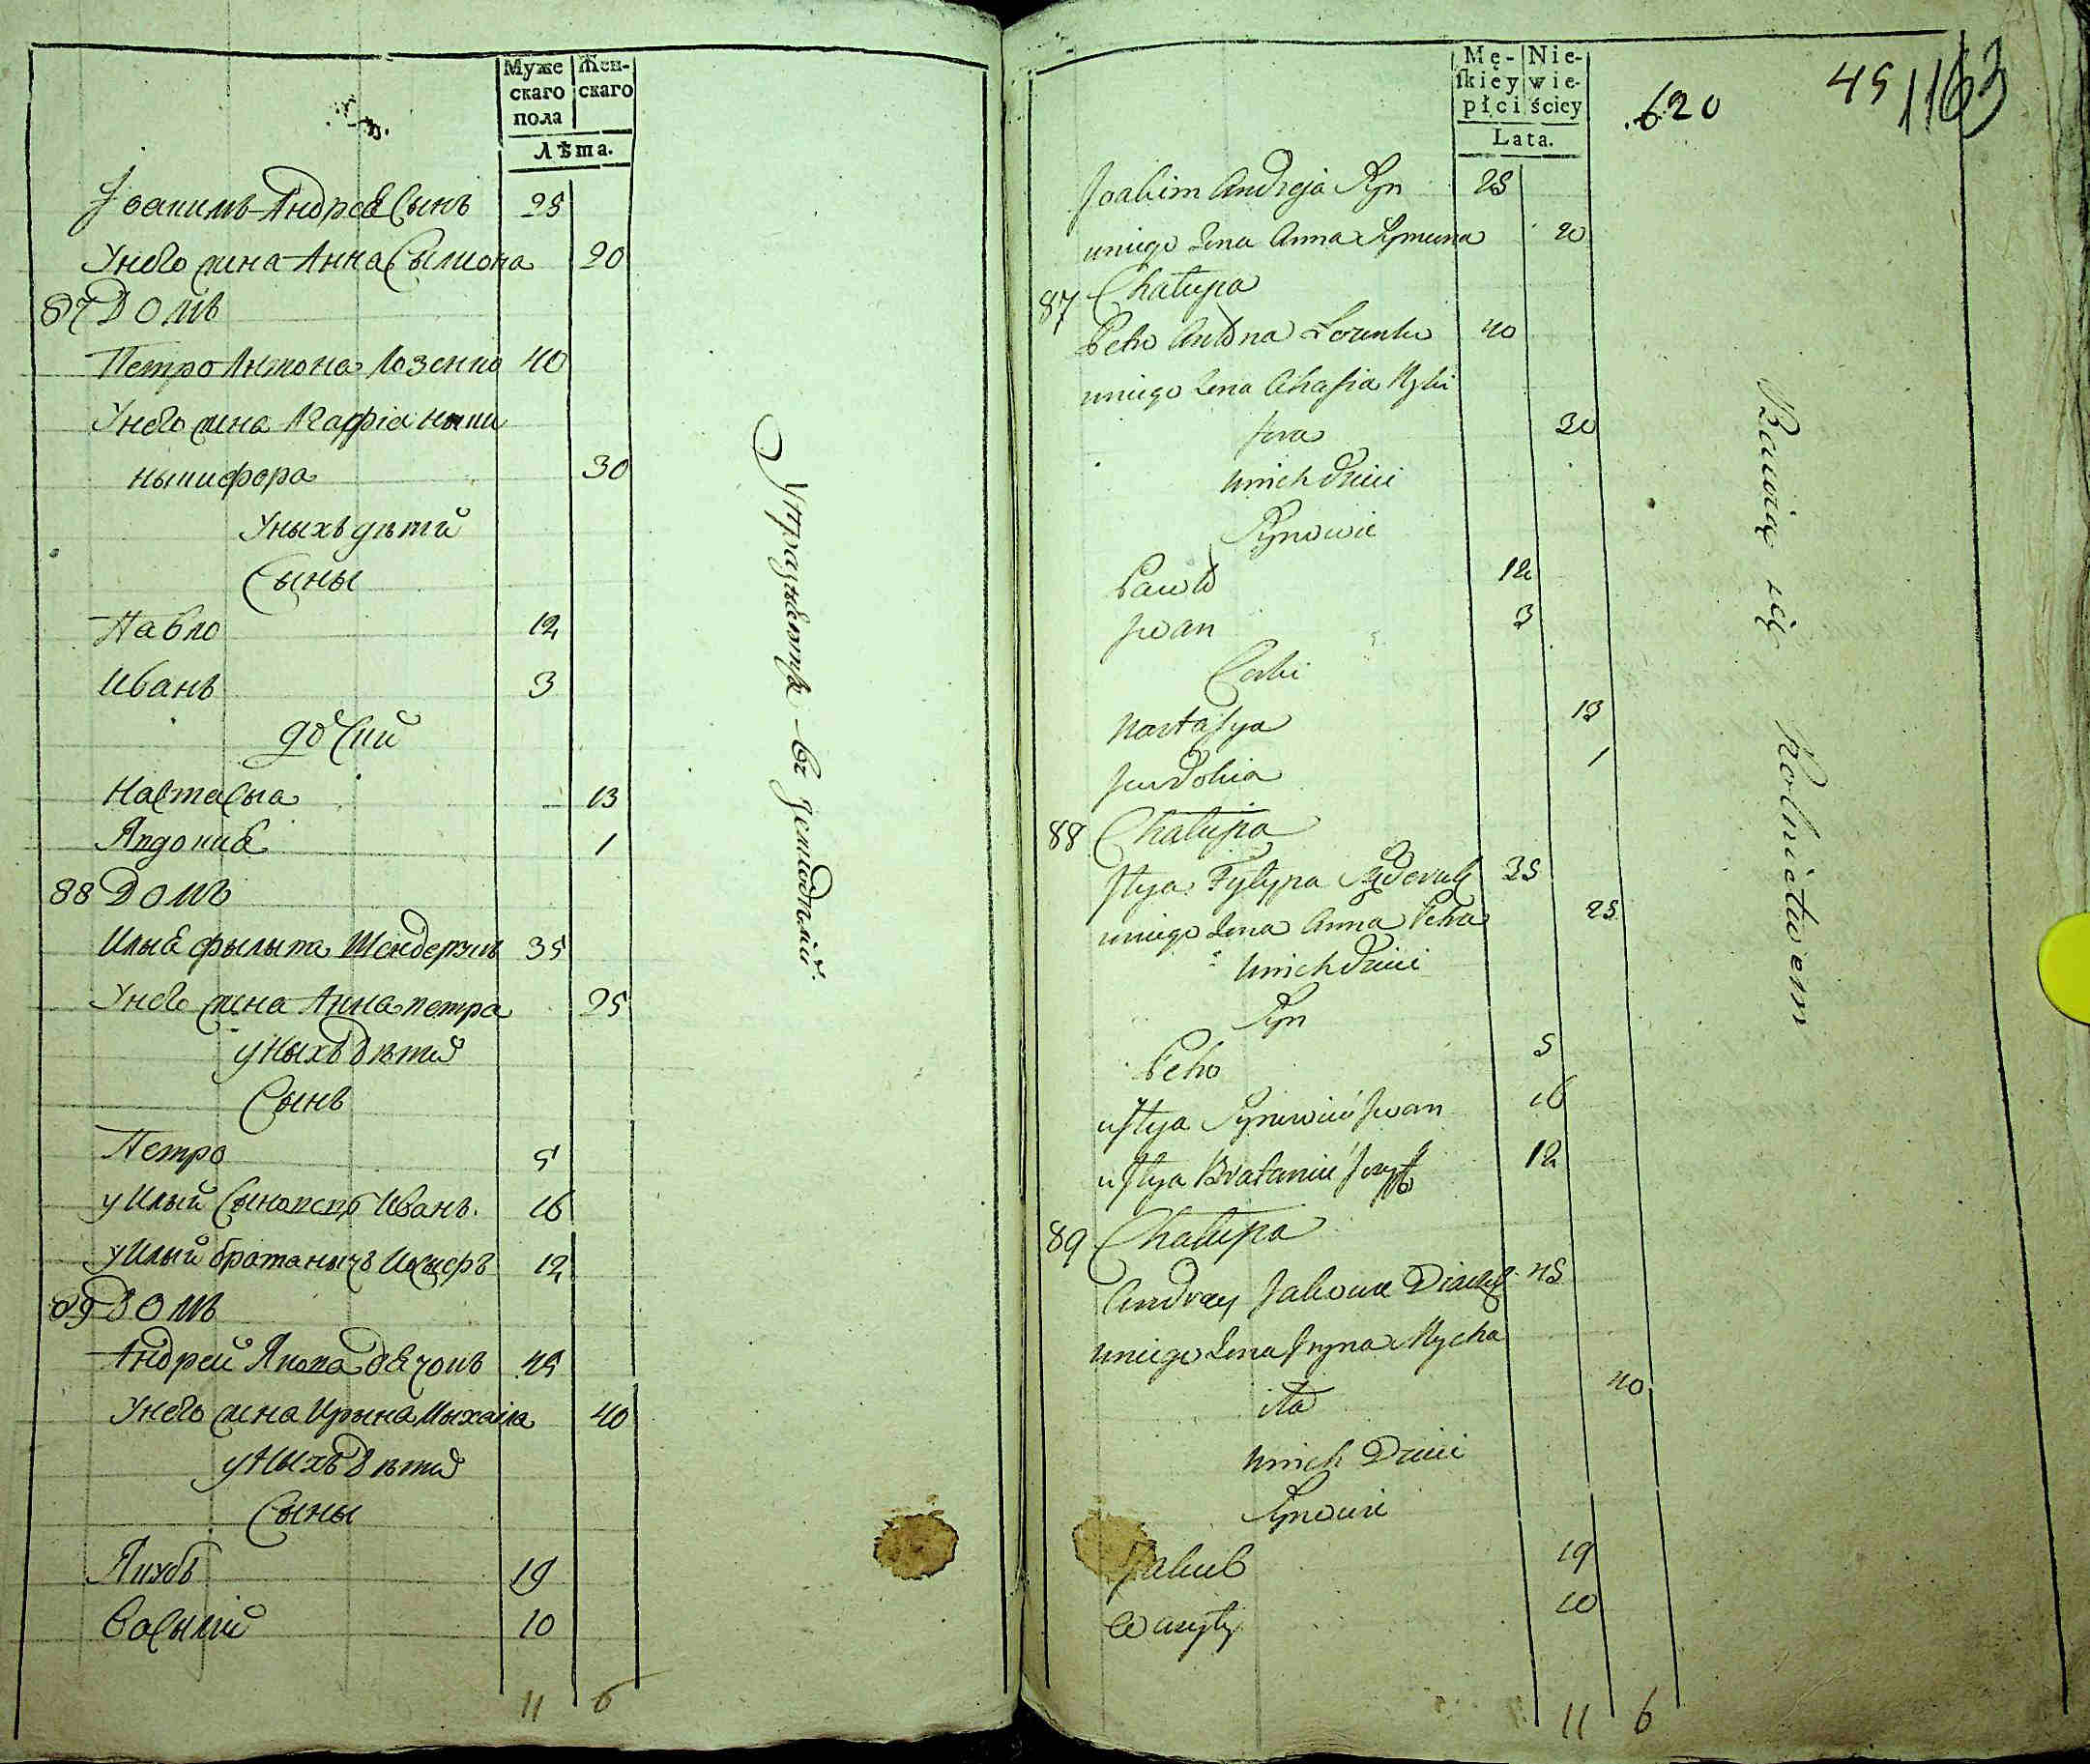 Муже
скаго
пола
Жен-
скаго
Лѣта.
Іоакимъ Андрея Сынъ 25
Унего жена Анна Сымона 20
87 Домъ
Петро Антона Лозенко 40
Унего жена Агафія ныки
ныкифора 30
Уныхъ дѣтй
Сыны
Павло 12
Иванъ 3
дочкй
Настасыа 13
Явдокиа 1
88 Домъ
Илыа Фылыпа Шендерукъ 35
Унего жена Анна петра 25
уныхъ дѣтй
Сынъ
Петро 5
у Илый Сынопецъ Иванъ. 16
у Илый братанычъ Иозефъ 12
89 Домъ
Андрей Якова дьячокъ 45
Унего жена Ирына Мыхайла 40
уныхъ дѣтй
Сыны
Якубъ 19
Васылій 10
11 6
Упражняется въ Земледѣліи.
Mę-
skiey
płci
Nie-
wie-
ściey
Lata.
620
45
1163
Joakim Andreja Syn 25
uniego żena Anna Symona 20
87 Chałupa
Petro Antona Łozenko 40
uniego żena Ahafia Nyki
fora 30
unich Dzieci
Synowie
Pawło 12
Jwan 3
Corki
Nastasya 13
Jewdokia 1
88 Chałupa
Jlya Fyłypa Szyderuk 35
uniego żena Anna Petra 25
unich Dzieci
Syn
Petro 5
u Jlya Synowiec Jwan 16
u Jlya Bratanic Jozyf 12
89 Chałupa
Andrey Jakowa Diaczok 45
uniego żena Jryna Mycha
iła 40
unich Dzieci
Synowie
Jakub 19
Wasyly 10
11 6
Bawią się Rolnictwem